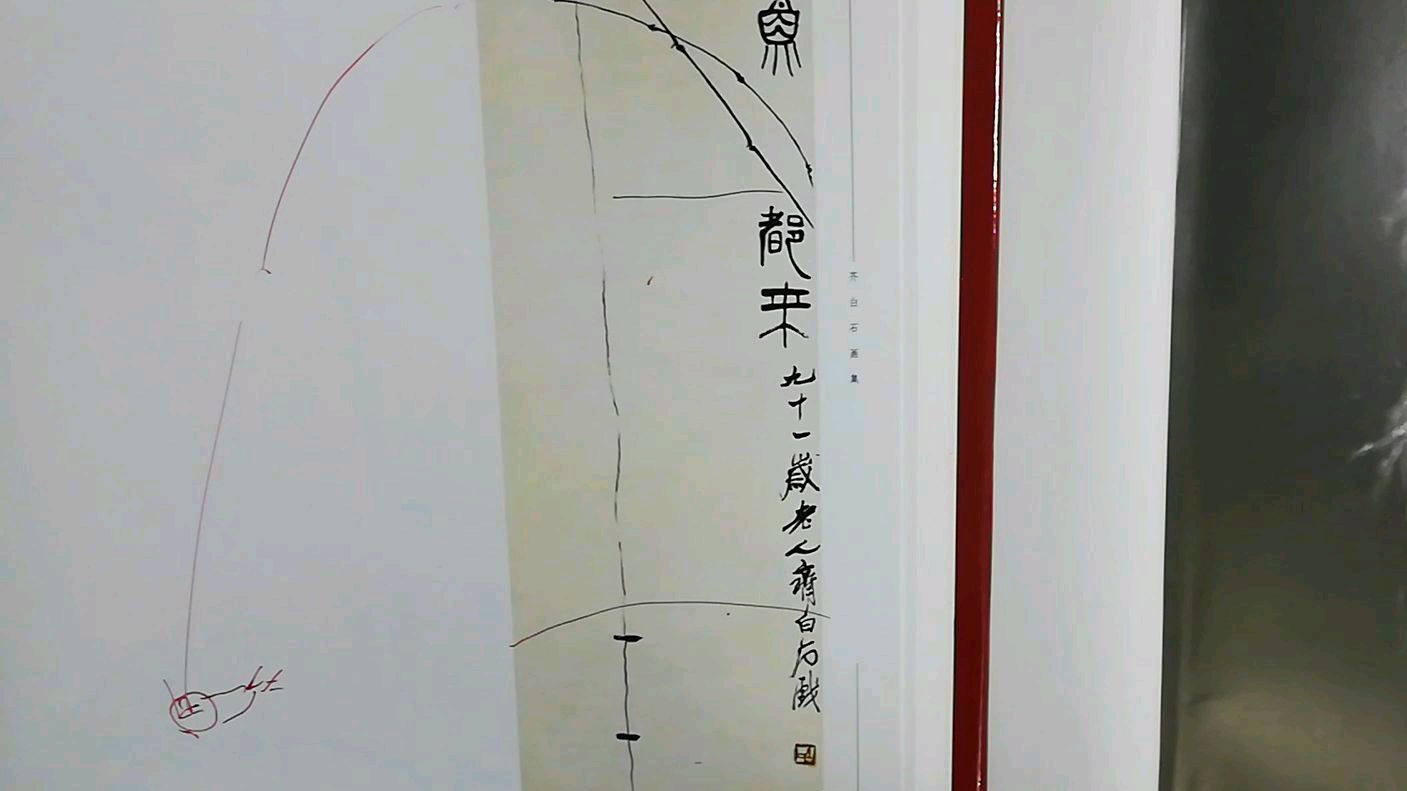 魚都来
九十一歲老人齊白石戲
齐白石画集